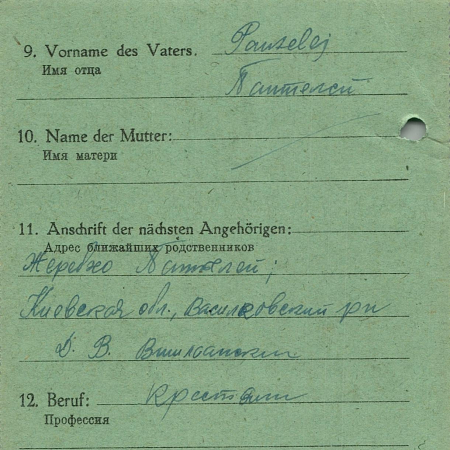 9. Vorname des Vaters. Pantelej
Имя отца
Пантелей
10. Name der Mutter:
Имя матери
11. Anschrift der nächsten Angehörigen:
Адрес ближайших родственников
Пантелей;
Киевская обл., Васильковский р-н
Д. В.
12. Beruf:
Профессия